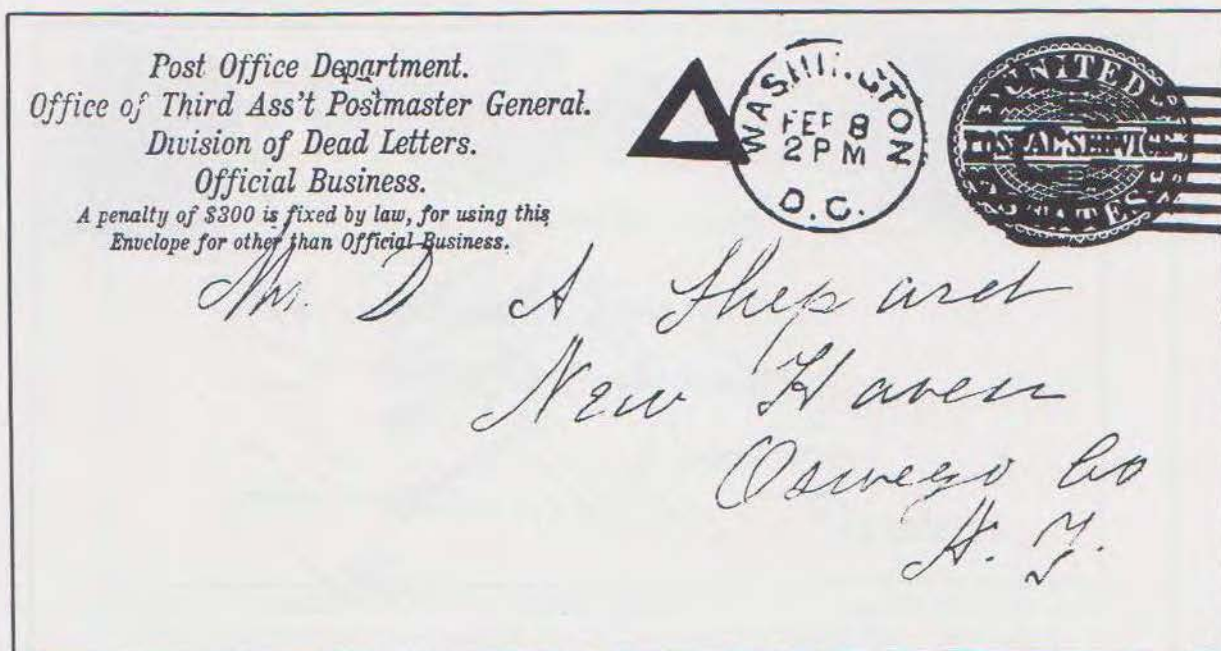 Post Office Department.
Office of Third Ass't Postmaster General.
Division of Dead Letters.
Official Business.
A penalty of $300 is fixed by law, for using this
Envelope for other than Official Business.
WASHINGTON
FEB 8
2 PM
D.C.
UNITED
POSTAL SERVICE
STATES
Mr. D A Shepard
New Haven
Oswego Co
N. Y.